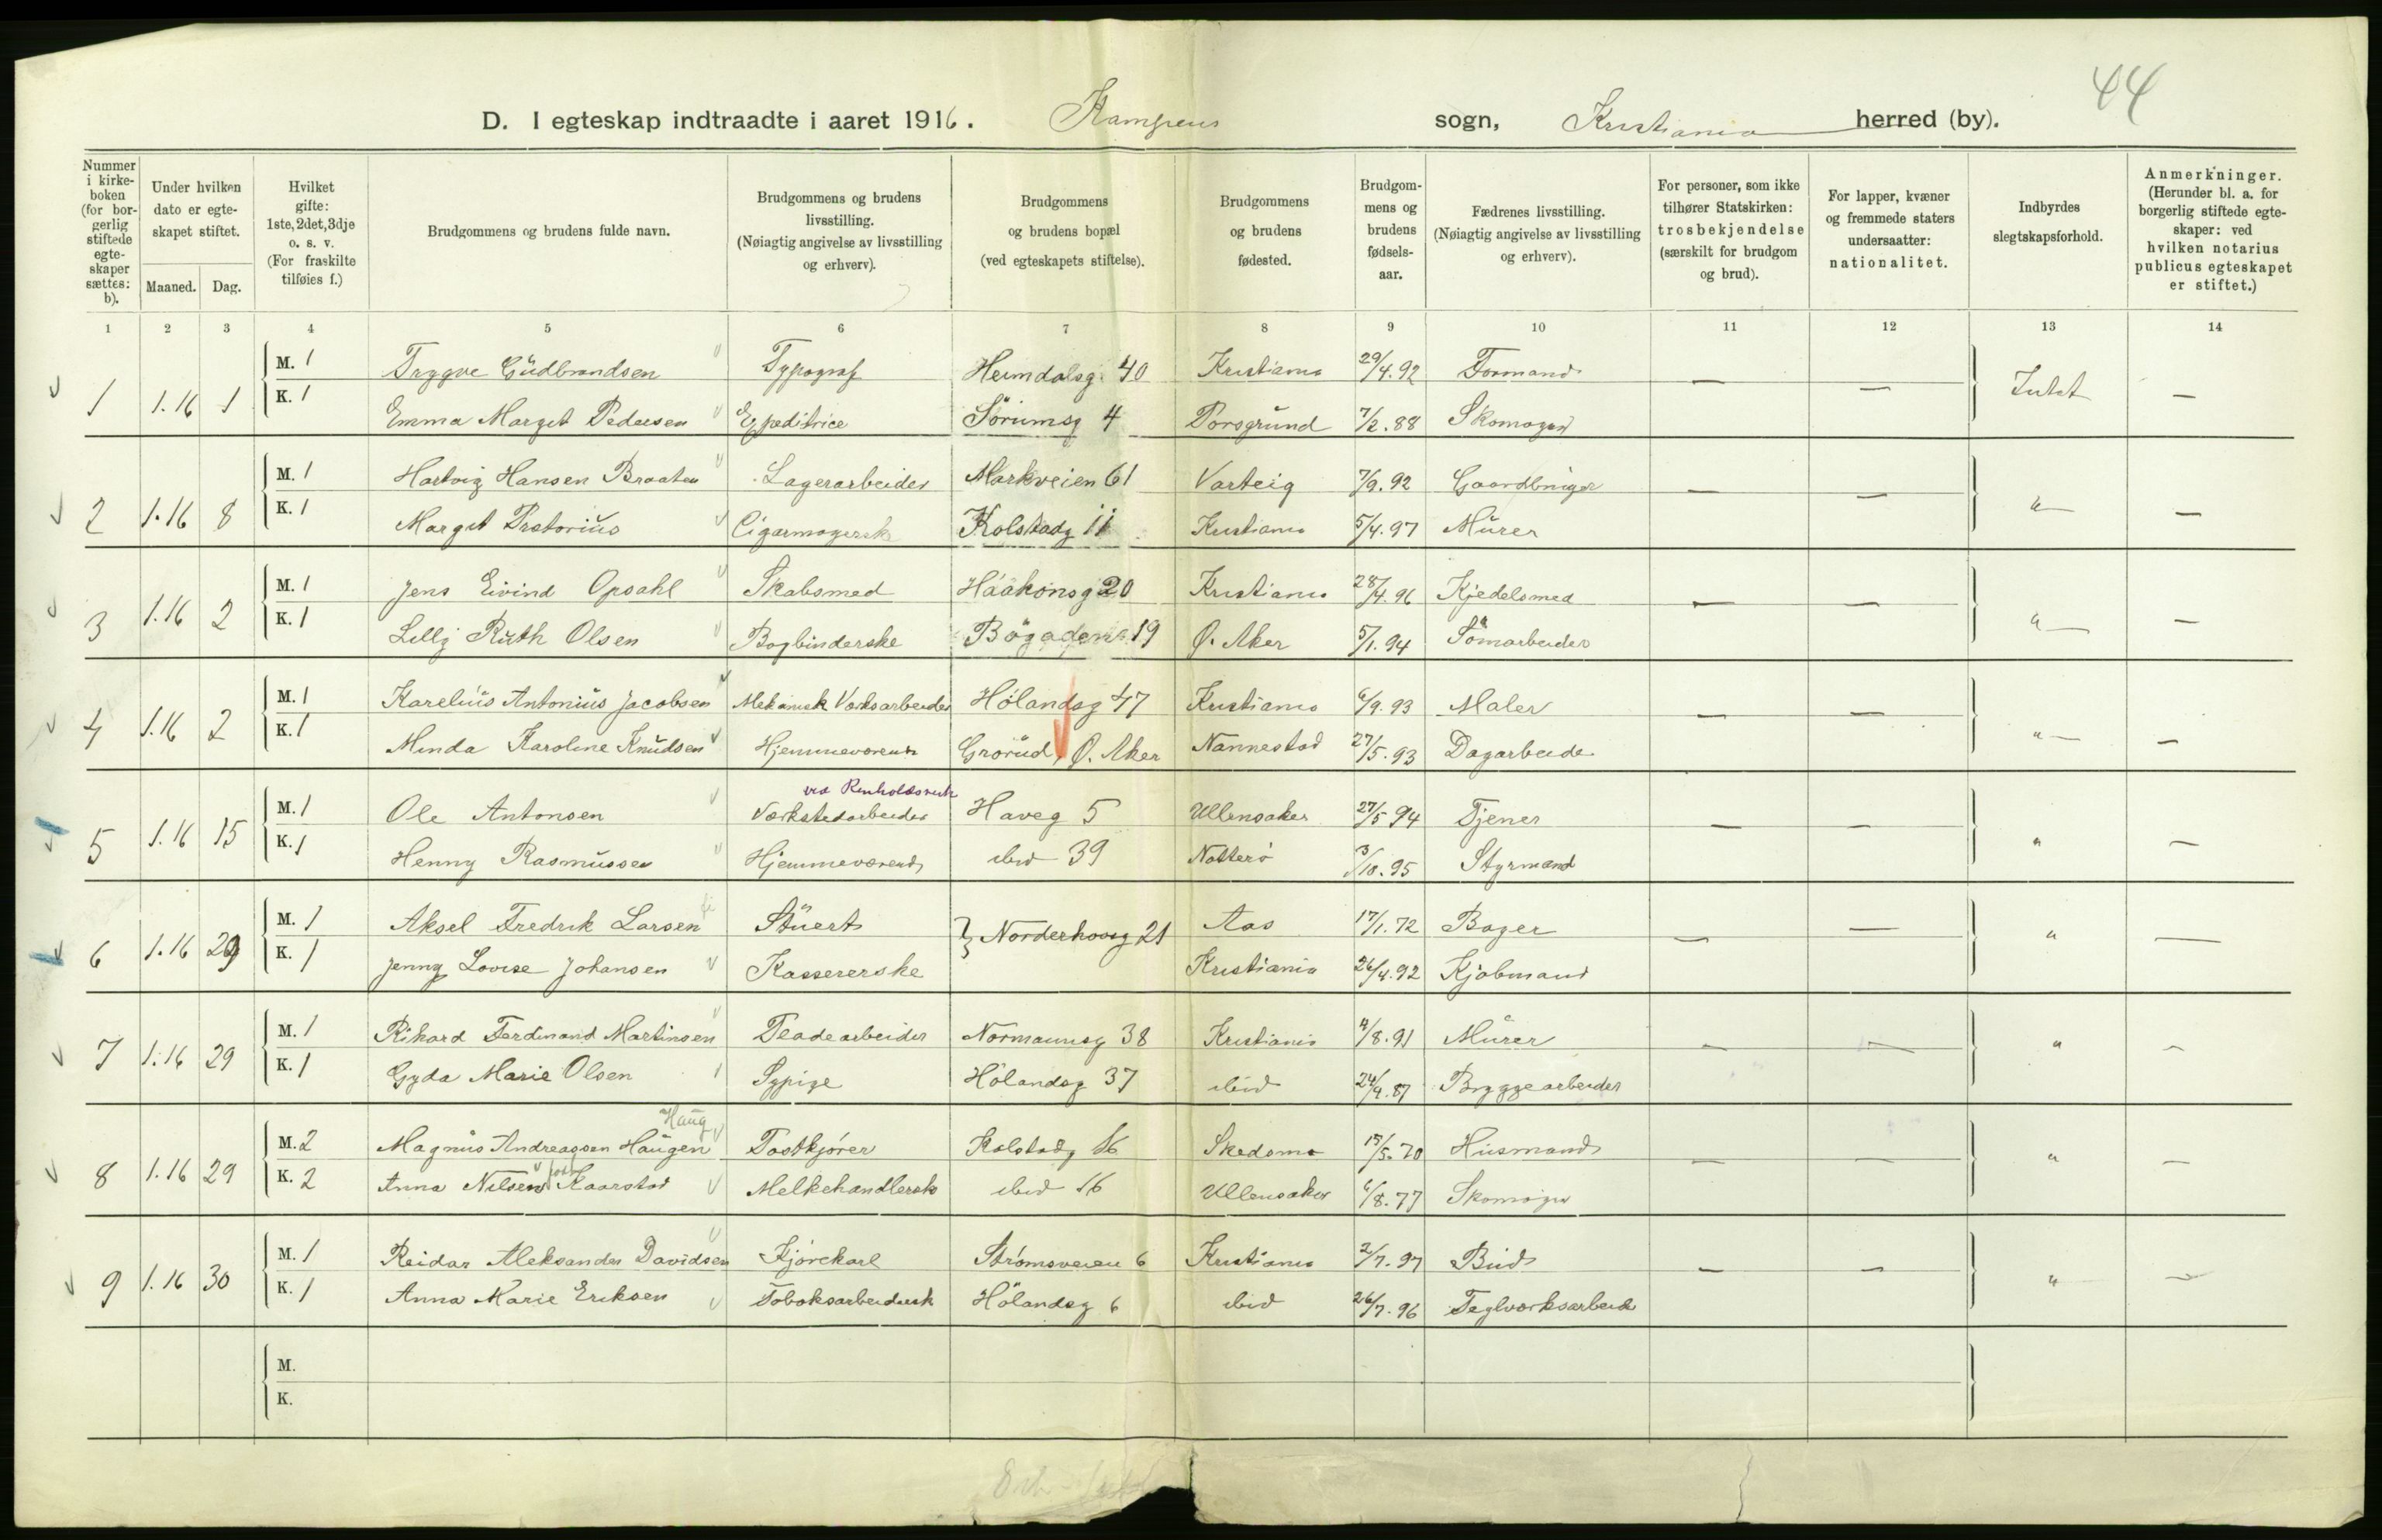 44
D. I egteskap indtraadte i aaret 1916. Kampens sogn, Kristiania herred (by).
Nummer i kirkeboken (for borgerlig stiftede egteskaper sættes: b).
Under hvilken dato er egteskapet stiftet.
Maaned. Dag.
Hvilket gifte: 1ste, 2det, 3dje o. s. v. (For fraskilte tilføies f.)
Brudgommens og brudens fulde navn.
Brudgommens og brudens livsstilling. (Nøiagtig angivelse av livsstilling og erhverv).
Brudgommens og brudens bopæl (ved egteskapets stiftelse).
Brudgommens og brudens fødested.
Brudgommens og brudens fødselsaar.
Fædrenes livsstilling. (Nøiagtig angivelse av livsstilling og erhverv).
For personer, som ikke tilhører Statskirken: trosbekjendelse (særskilt for brudgom og brud).
For lapper, kvæner og fremmede staters undersaatter: nationalitet.
Indbyrdes slegtskapsforhold.
Anmerkninger. (Herunder bl. a. for borgerlig stiftede egteskaper: ved hvilken notarius publicus egteskapet er stiftet.)
1 2 3 4 5 6 7 8 9 10 11 12 13 14
1 1.16 1 M. 1 Trygve Gudbrandsen Typograf Heimdalsg. 40 Kristiania 29/4.92 Formand — — Intet —
K. 1 Emma Margit Pedersen Expeditrice Sörumsg 4 Porsgrund 7/2.88 Skomager
2 1.16 8 M. 1 Hartvig Hansen Braaten Lagerarbeider Markveien 61 Varteig 7/9.92 Gaardbruger — — " —
K. 1 Margit Pretorius Cigarmagerske Kolstadg 11 Kristiania 5/4.97 Murer
3 1.16 2 M. 1 Jens Eivind Opsahl Skabsmed Haakonsg 20 Kristiania 28/4.96 Kjedelsmed — — " —
K. 1 Lilly Ruth Olsen Bogbinderske Bögaden 19 Ø. Aker 5/1.94 Tömarbeider
4 1.16 2 M. 1 Karelius Antonius Jacobsen Mekanisk Værksarbeider Hölandsg 47 Kristiania 6/9.93 Maler — — " —
K. 1 Minda Karoline Knudsen Hjemmeværende Grorud, Ø. Aker Nannestad 27/5.93 Dagarbeide
ved Renholdsverk
5 1.16 15 M. 1 Ole Antonsen Værkstedarbeider Haveg 5 Ullensaker 27/5 94 Tjener — — " —
K. 1 Henny Rasmussen Hjemmeværende ibid 39 Nötterö 3/10.95 Styrmand
6 1.16 29 M. 1 Aksel Fredrik Larsen Stuert } Norderhovsg 21 Aas 17/1.72 Bager — — " —
K. 1 Jenny Lovise Johansen Kassererske Kristiania 26/4.92 Kjöbmand
7 1.16 29 M. 1 Rikard Ferdinand Martinsen Teadearbeider Normannsg 38 Kristiania 4/8.91 Murer — — " —
K. 1 Gyda Marie Olsen Sypige Hölandsg 37 ibid 24/9.87 Bryggearbeider
Haug
8 1.16 29 M. 2 Magnus Andreassen Haugen Postkjører Kolstadg 16 Skedsmo 15/5.70 Husmand — — " —
K. 2 Anna Nilsen Kaarstad Melkehandlersk ibid 16 Ullensaker 6/8.77 Skomager
9 1.16 30 M. 1 Reidar Aleksander Davidsen Kjørekarl Strømsveien 6 Kristiania 2/7.97 Bud — — " —
K. 1 Anna Marie Eriksen Toboksarbeidersk Hölandsg 6 ibid 26/7.96 Teglverksarbeide
M.
K.